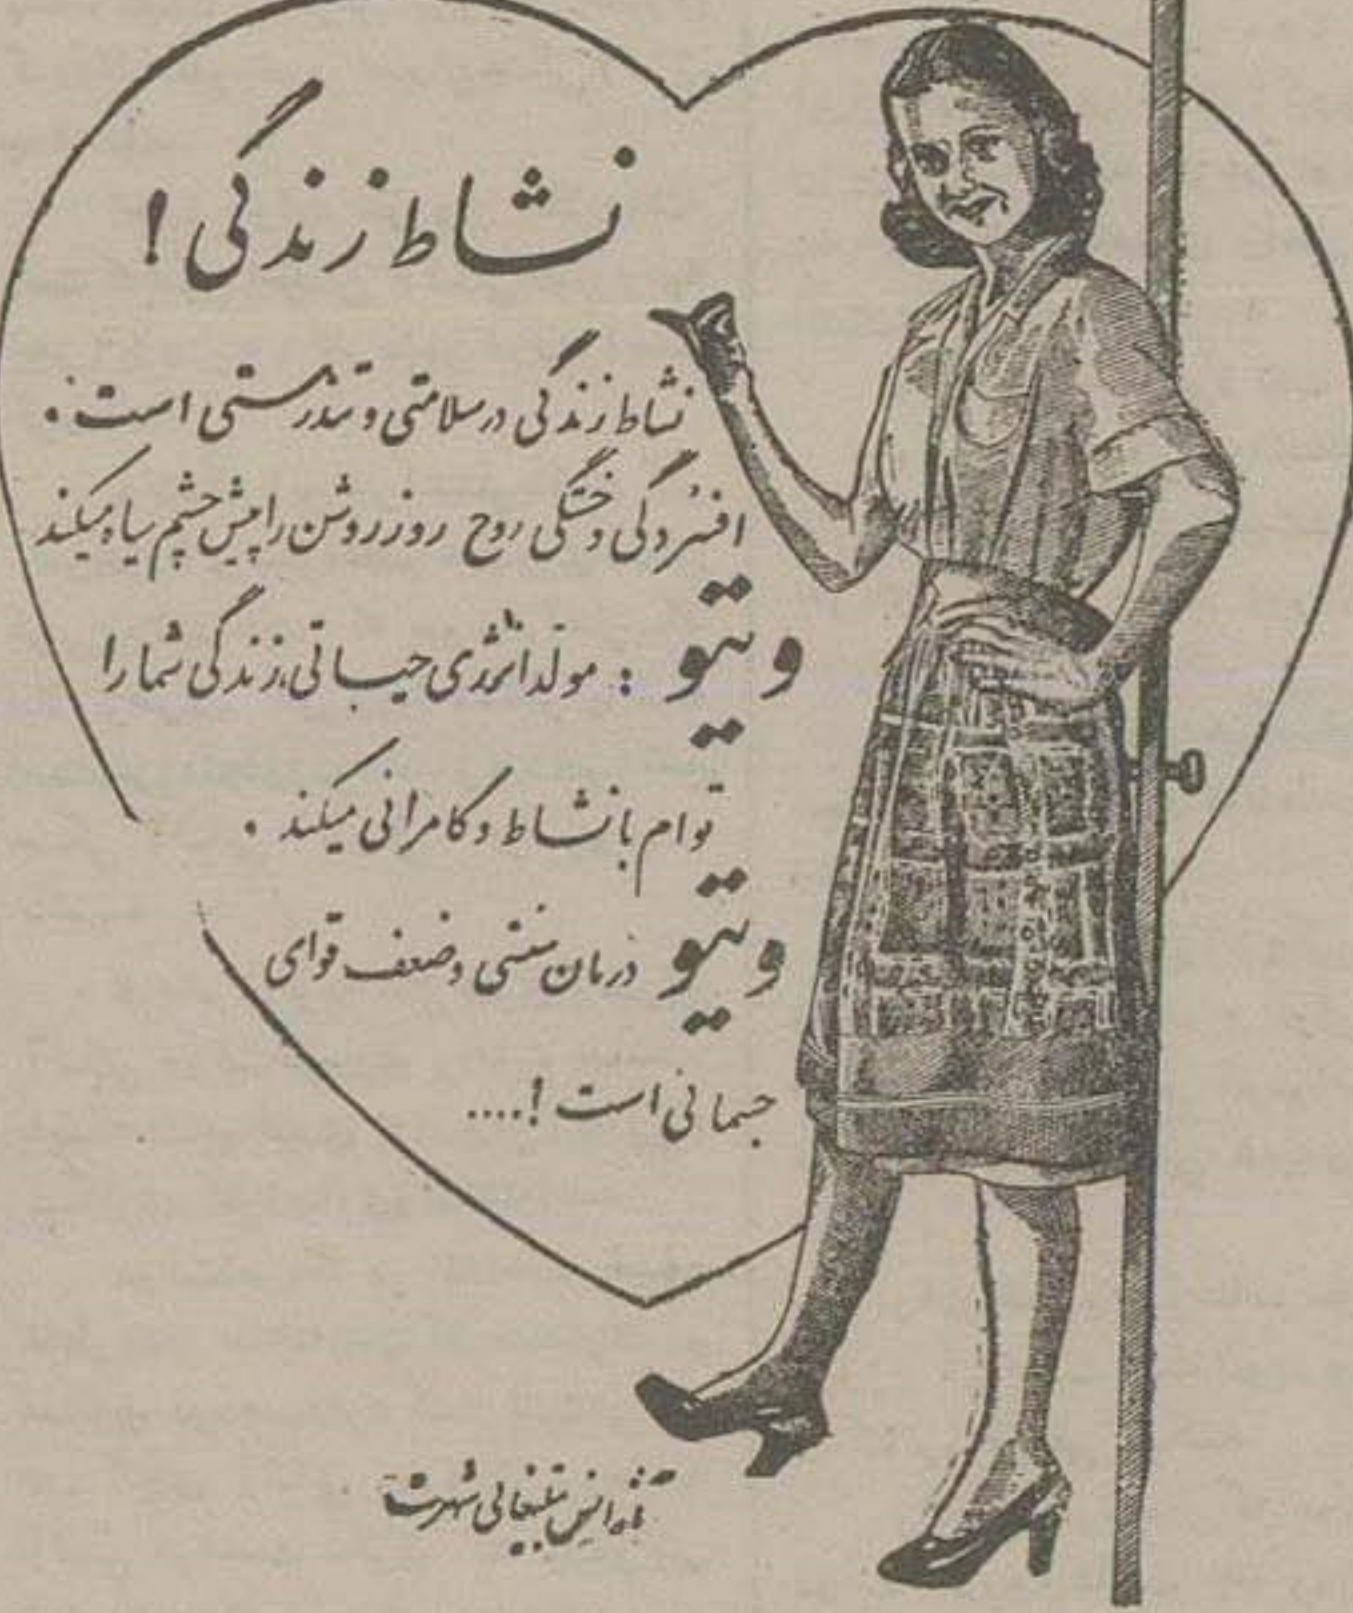 نشاط زندگی !
نشاط زندگی در سلامتی و تندرستی است .
افسردگی و خستگی روح روز روشن را پیش چشم سیاه میکند
ویتو : مولد انرژی حیاتی، زندگی شما را
توام با نشاط و کامرانی میکند .
ویتو درمان سستی و ضعف قوای
جسمانی است !....
آژانس تبلیغاتی شهرت